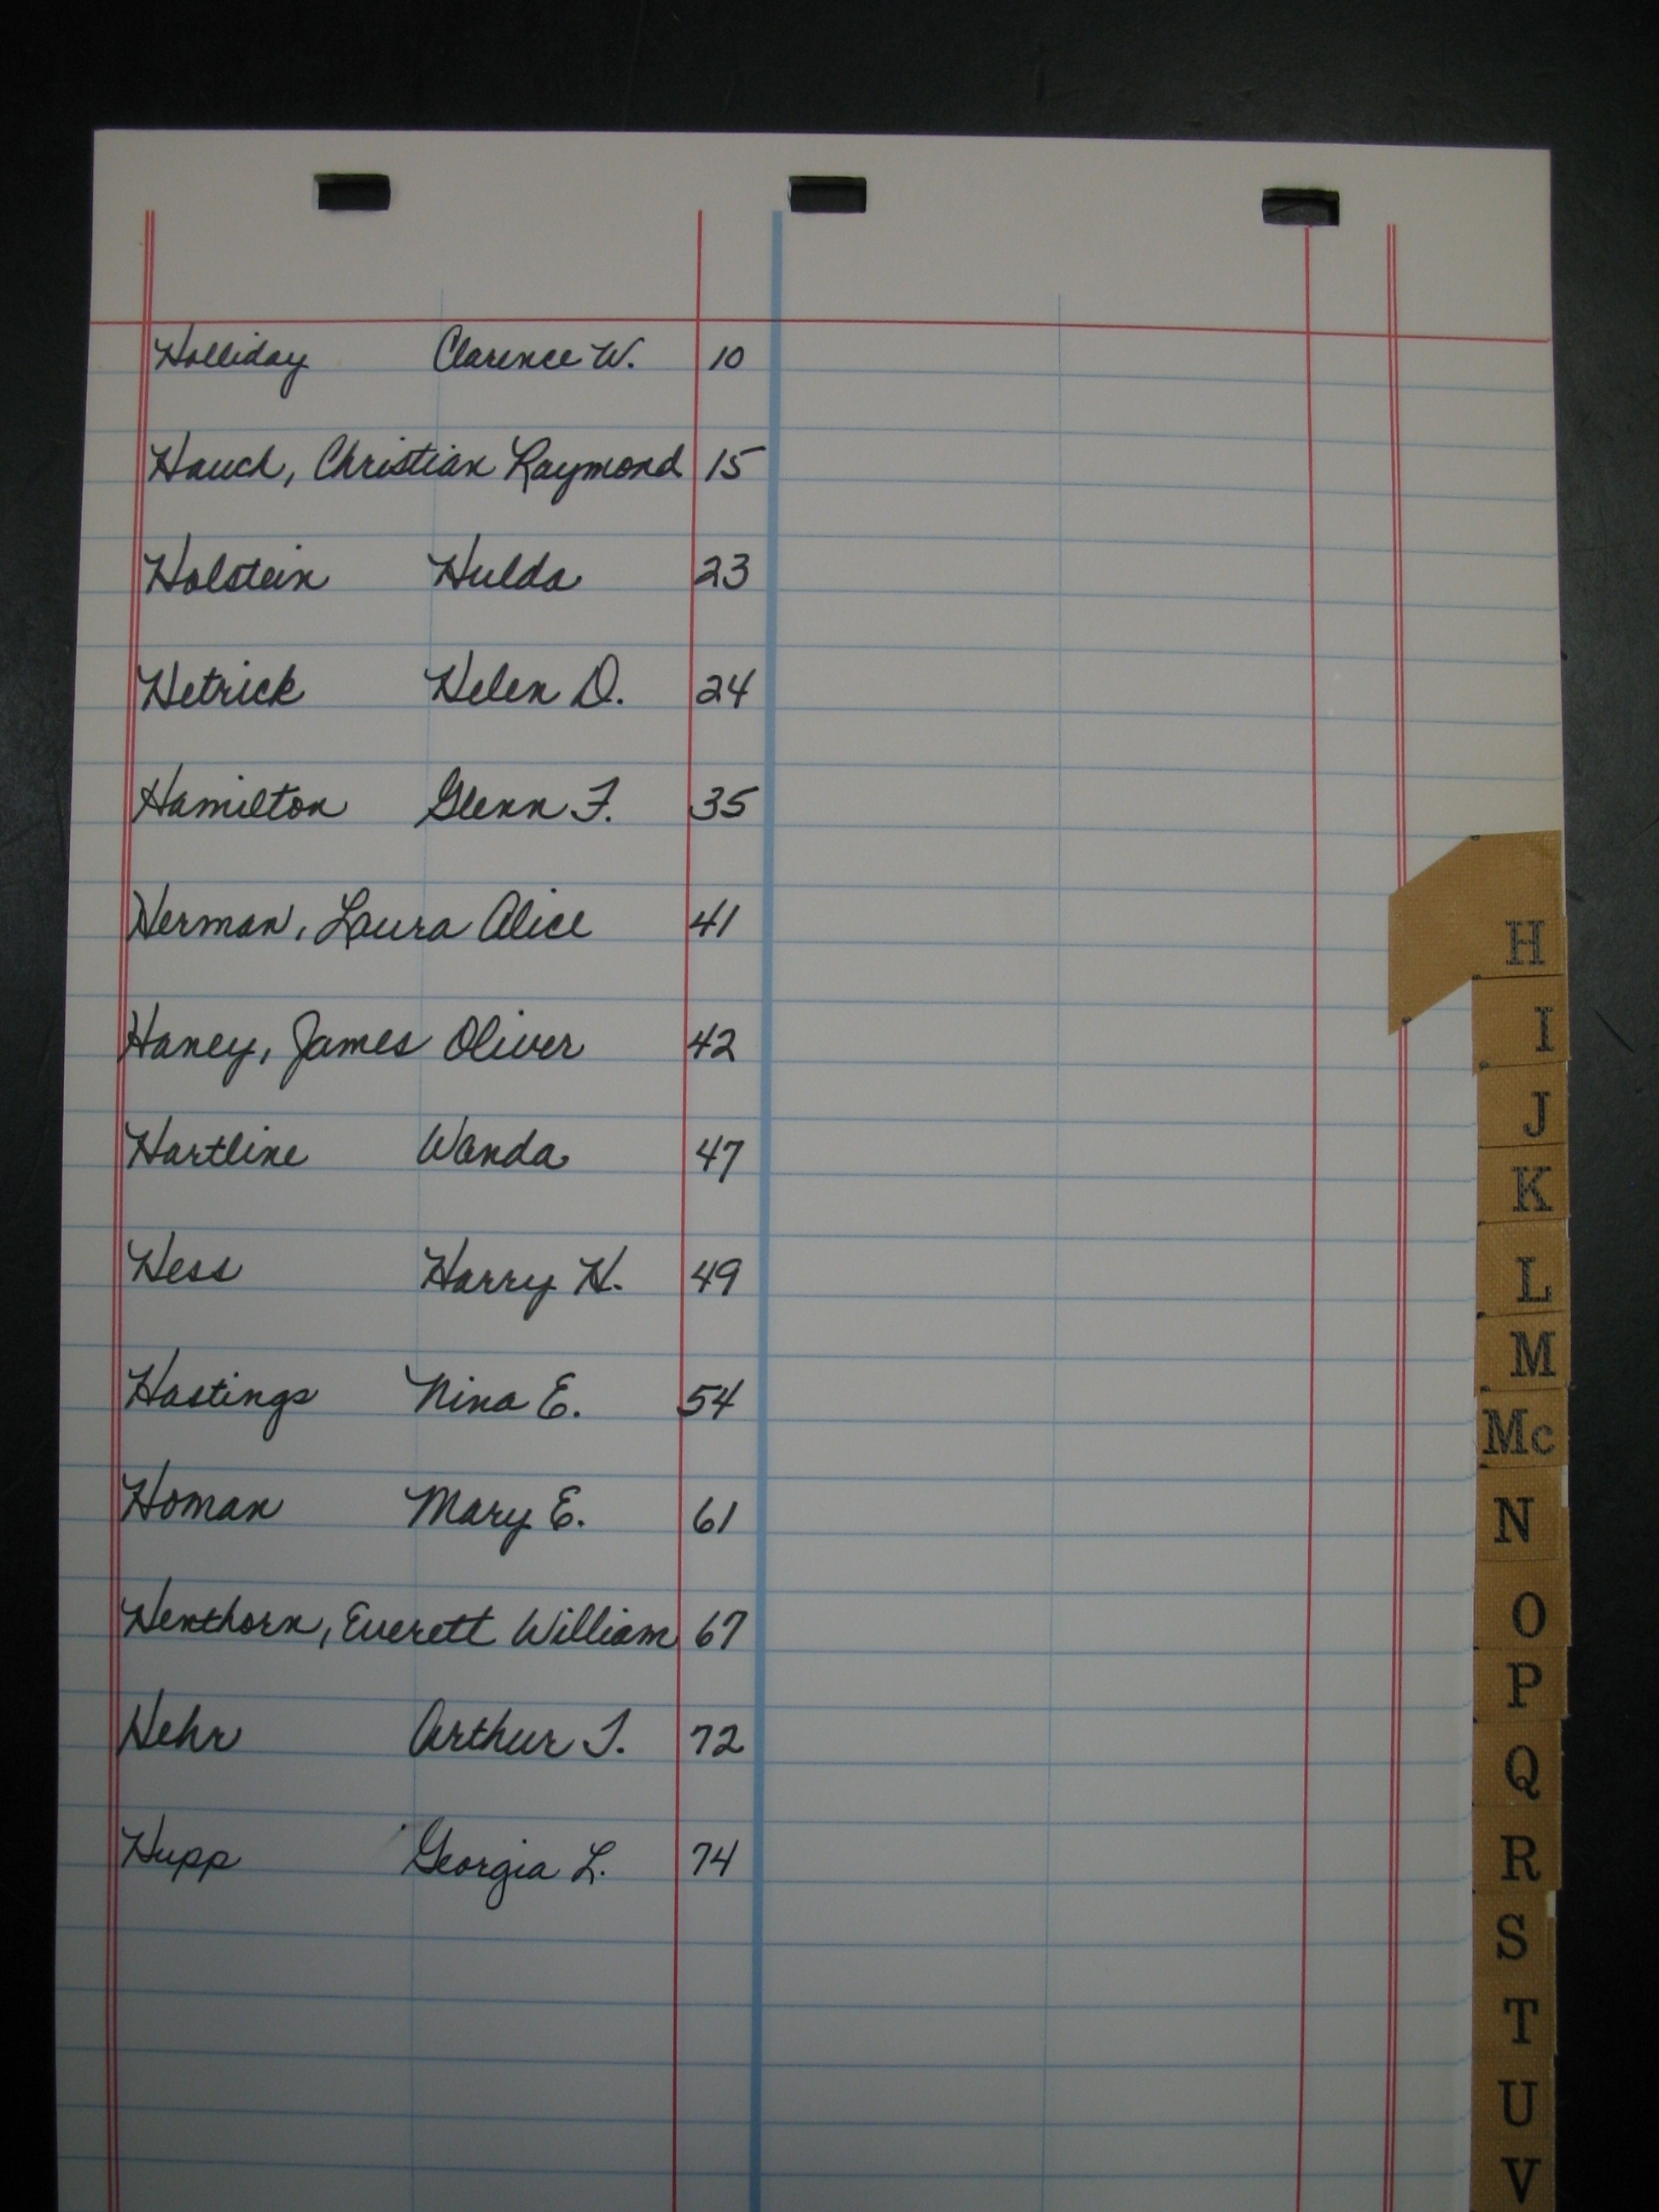 Holliday Clarence W. 10
Hauch, Christian Raymond 15
Holstein Hulda 23
Hetrick Helen D. 24
Hamilton Glenn F. 35
Herman, Laura Alice 41
Haney, James Oliver 42
Hartline Wanda 47
Hess Harry H. 49
Hastings Nina E. 54
Homan Mary E. 61
Henthorn, Everett William 67
Hehr Arthur J. 72
Hupp Georgia L. 74
H
I
J
K
L
M
Mc
N
O
P
Q
R
S
T
U
V